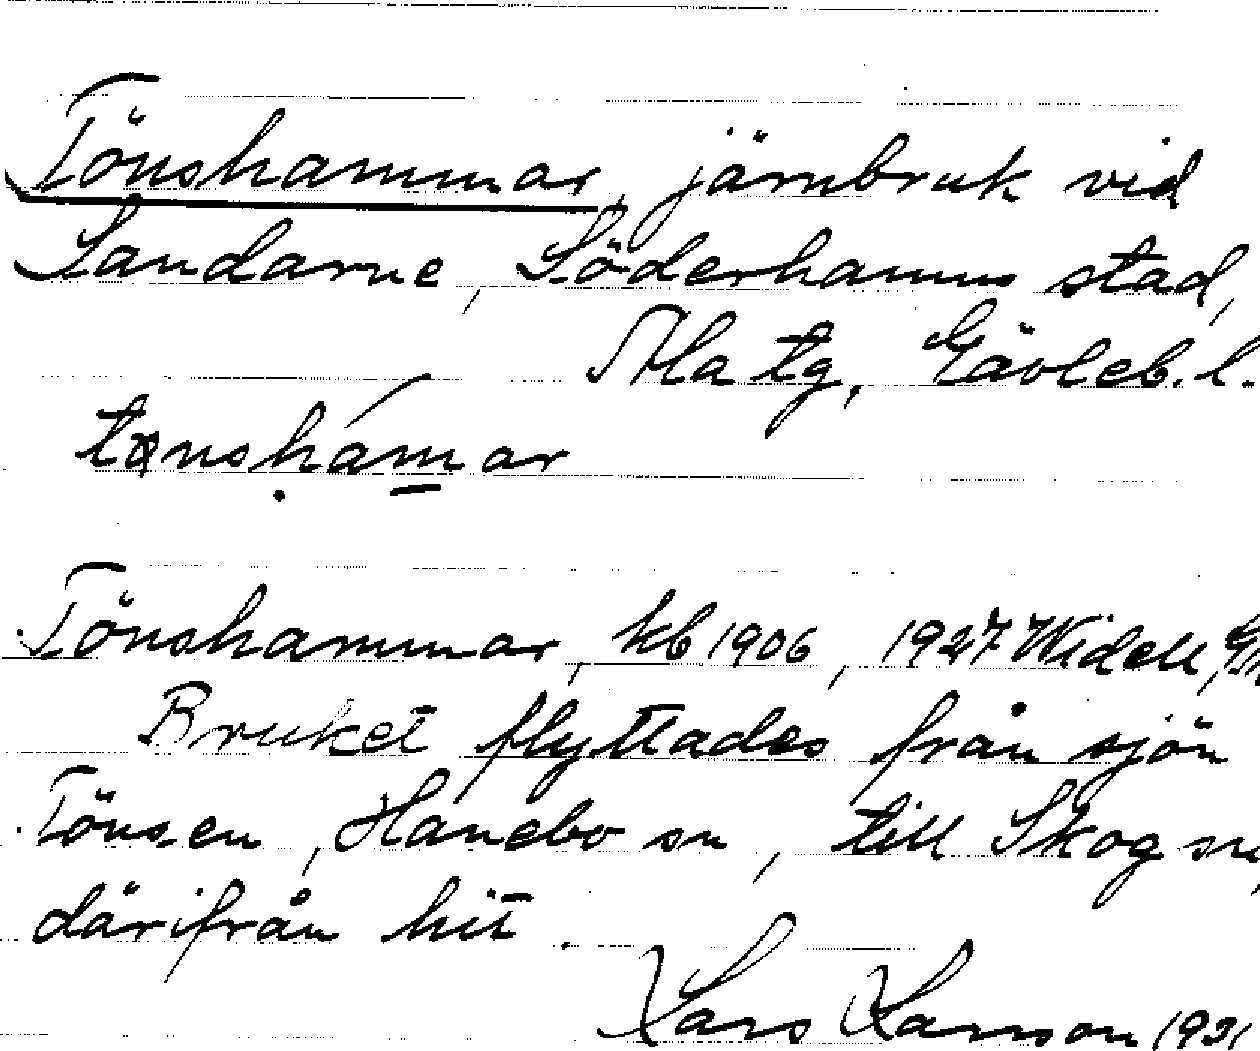 Tönshammar, järnbruk vid
Sandarne, Söderhamns stad,
Ala tg, Gävleb. l.
Tönshammar, kb 1906, 1927 Widell,
Bruket flyttades från sjön
Tönsen, Hanebo sn, till Skog sn,
därifrån hit.
Lars Larsson 1931